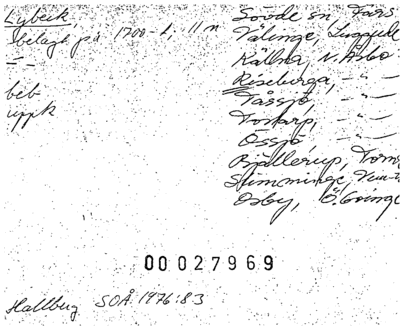 Lybeck,
belagt på 1700-t, 11 n
— " —
beb
uppk
Sövde sn, Färs
Välinge, Luggude
Källna, N. Åsbo
Riseberga, — " —
Tåssjö, — " —
Tostarp, — " —
Össjö, — " —
Bjällerup, Torna
Stimminge, Vem
Osby, Ö. Göinge
00027969
Hallberg SOÅ 1976:83